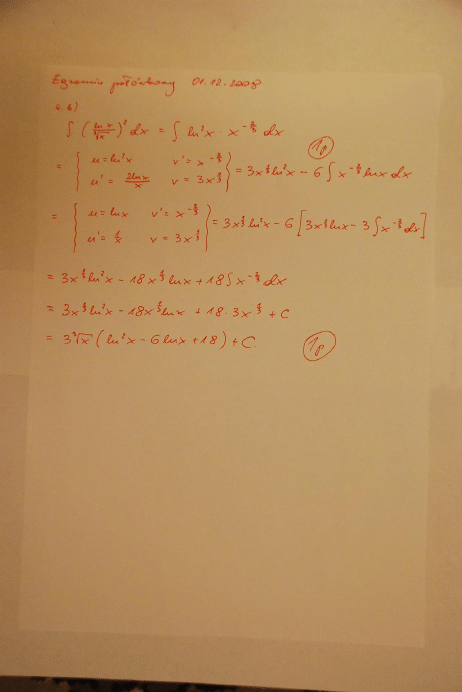 Egzamin połówkowy 01.12.2008
4. b)
∫ (ln x / ∛x)² dx = ∫ ln²x · x^(-2/3) dx
1p
= { u = ln²x v' = x^(-2/3) u' = 2lnx/x v = 3x^(1/3) } = 3x^(1/3) ln²x - 6 ∫ x^(-2/3) lnx dx
= { u = lnx v' = x^(-2/3) u' = 1/x v = 3x^(1/3) } = 3x^(1/3) ln²x - 6 [3x^(1/3) lnx - 3 ∫ x^(-2/3) dx]
= 3x^(1/3) ln²x - 18x^(1/3) lnx + 18 ∫ x^(-2/3) dx
= 3x^(1/3) ln²x - 18x^(1/3) lnx + 18 · 3x^(1/3) + C
= 3∛x (ln²x - 6lnx + 18) + C.
1p